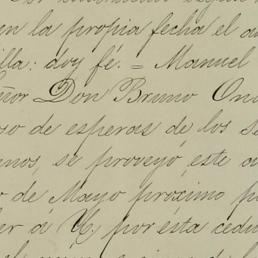 en la propia fecha el a
illa: doy fé. = Manuel
ñor Don Bruno On
so de esperas de los Se
enos, se proveyó este a
o de Mayo proximo p
er á V, por ésta cedu